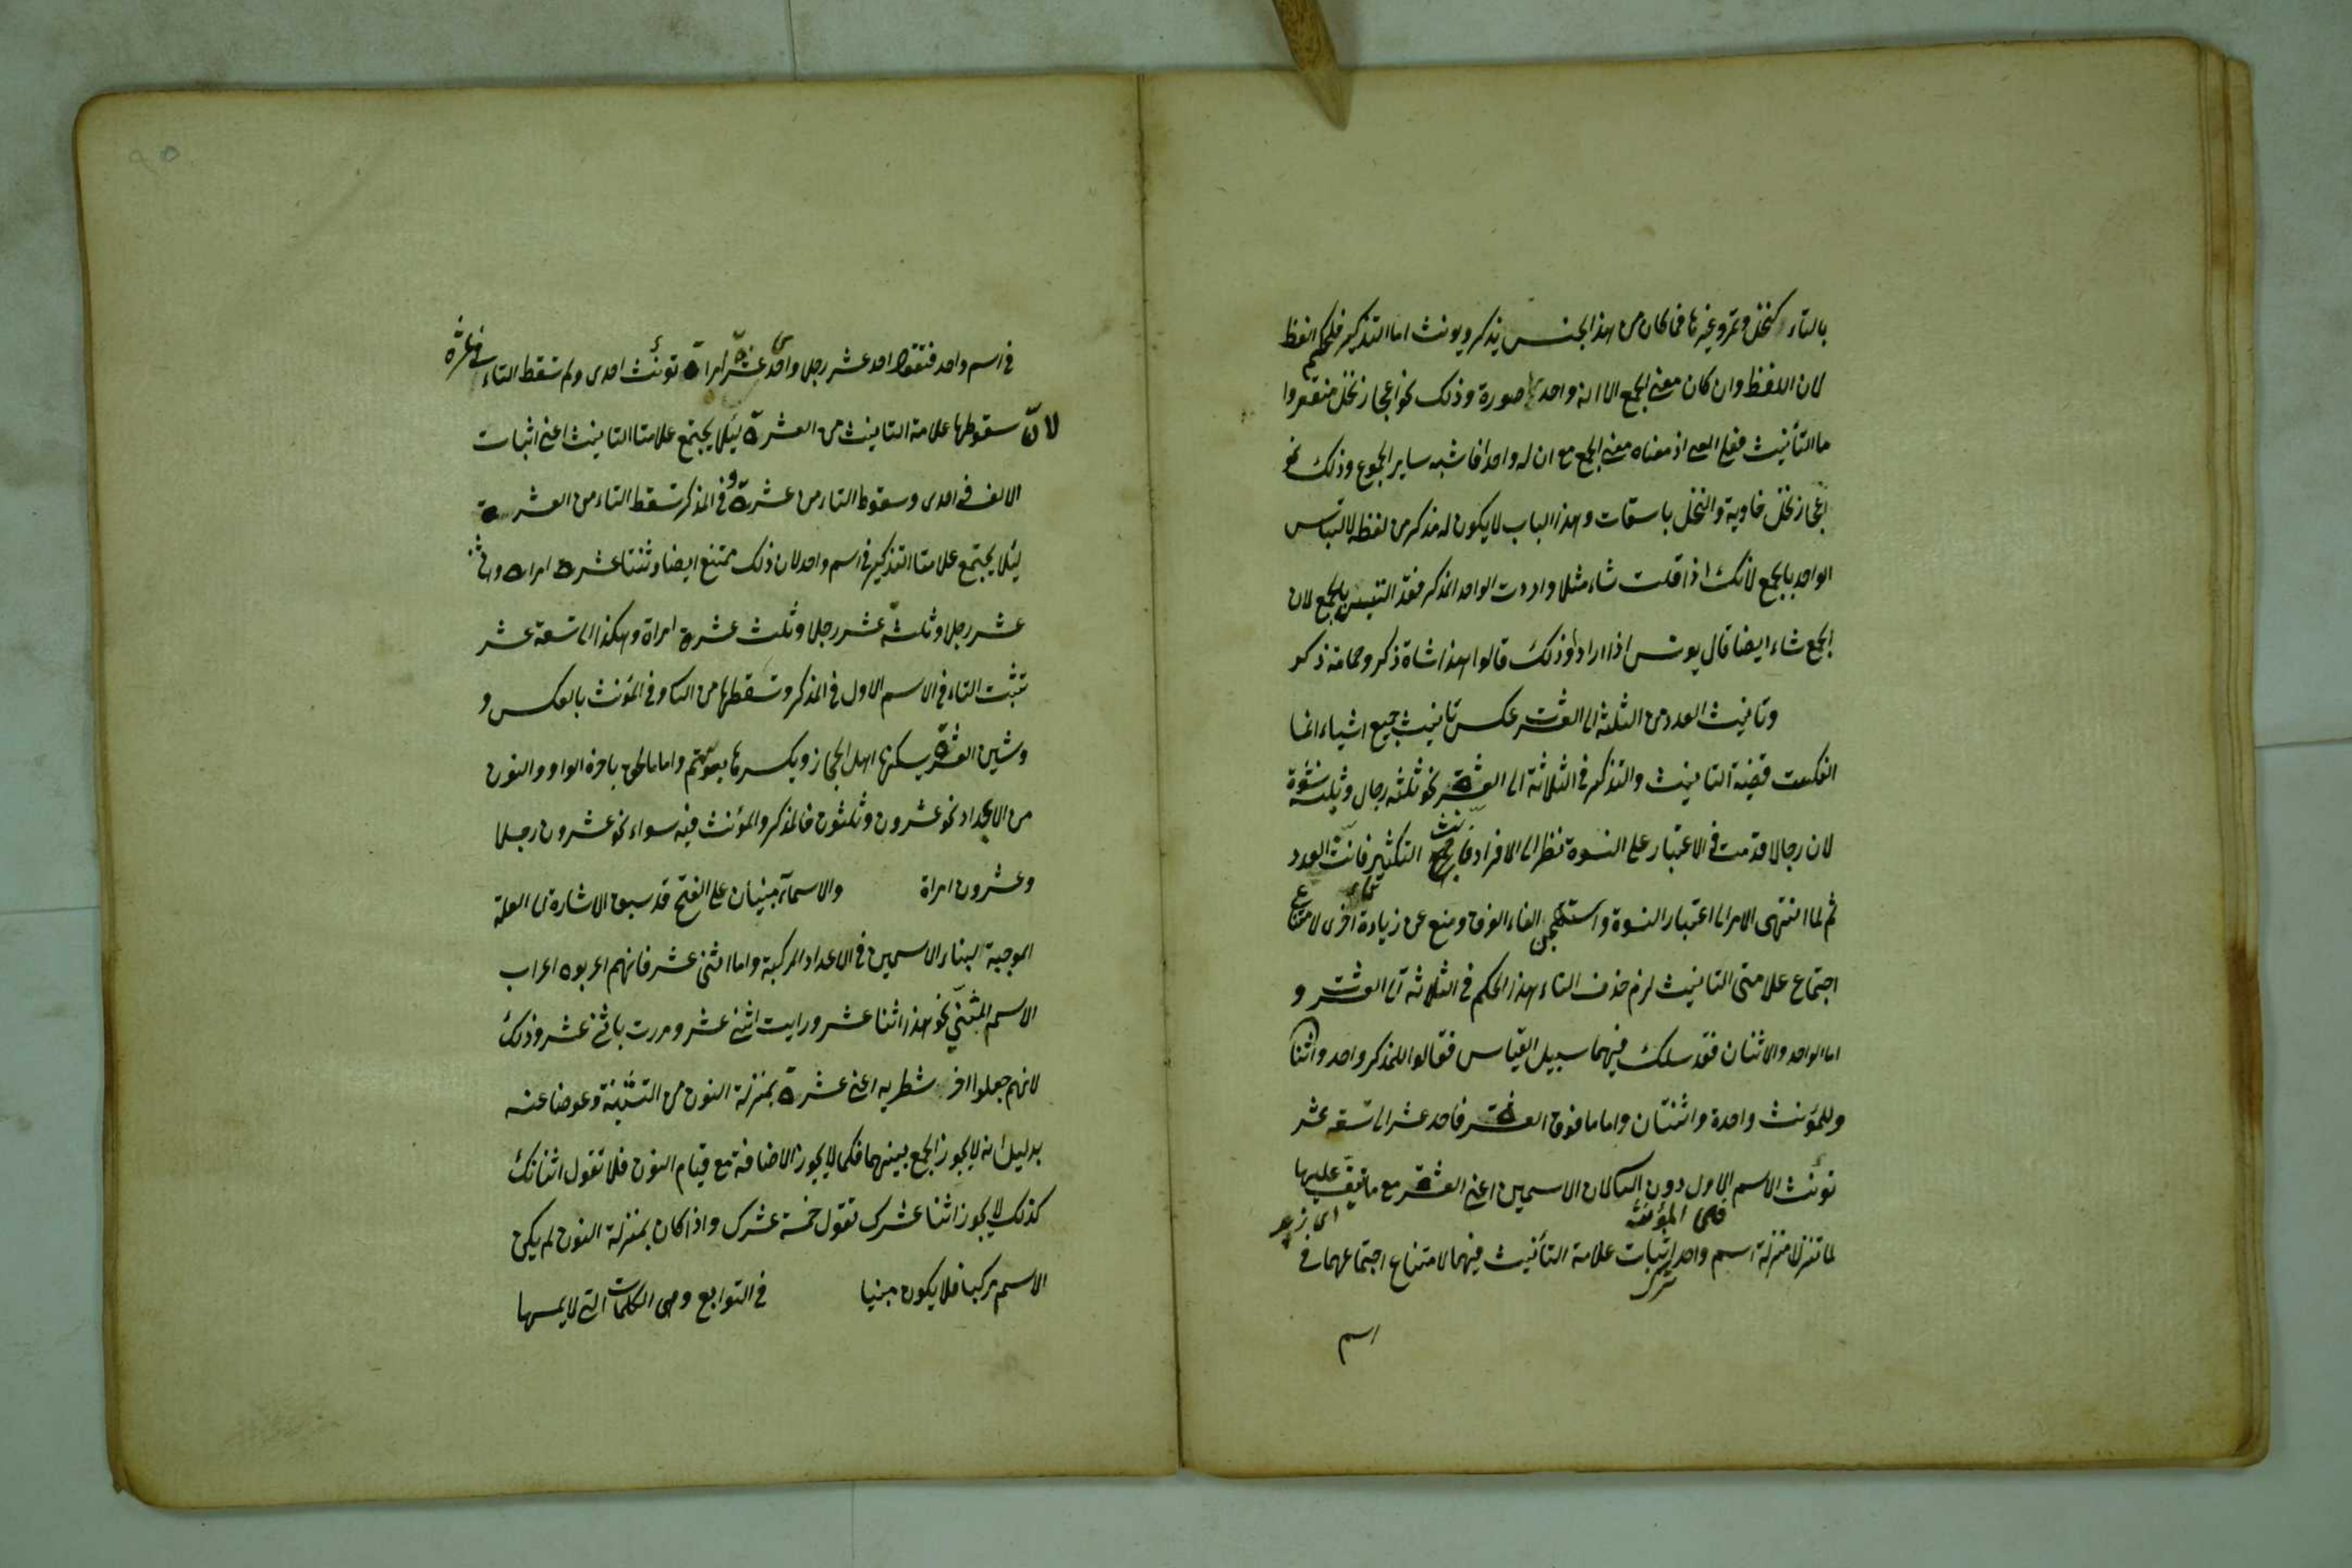 بالتاء كنخل وتمر وغيرها فما كان من هذا الجنس يذكر ويونث اما التذكير فلحكم الفظ
لان اللفظ وان كان معنى الجمع الا انه واحد صورة وذلك نحو اعجاز نخل منقعر وا
ما التأنيث فعلى اذ معناه معنى الجمع مع ان له واحدا فاشبه ساير الجموع وذلك نحو
اعجاز نخل خاوية والنخل باسقات وهذا الباب لا يكون له مذكر من لفظه لالتباس
الواحد بالجمع لانك اذا قلت شاء مثلا واردت الواحد المذكر فقد التبس بالجمع لان
الجمع شاء ايضا قال يونس اذا ارادوا ذلك قالوا هذا شاة ذكر وحمامة ذكر
وتانيث العدد من الثلثة الى العشرة عكس تانيث جميع اشياء انما
انعكست قضية التانيث والتذكير في الثلاثة الى العشرة نحو ثلثة رجال وثلث نسوة
لان رجالا قدمت في الاعتبار على النسوة نظرا الى الافراد التكثير فانث العدد
ثم لما انتهى الامر الى اعتبار النسوة واستهجن الغاء الفرق ومنع عن زيادة تاء اخرى لامتناع
اجتماع علامتى التانيث لزم حذف التاء هذا الحكم في الثلاثة الى العشرة و
اما الواحد والاثنان فقد سلك فيهما سبيل القياس فقالوا للمذكر واحد واثنان
وللمؤنث واحدة واثنتان واما ما فوق العشرة فاحد عشر الى تسعة عشر
تونث الاسم الاول دون الثانى لان الاسمين اعنى العشرة مع ما نيف عليها
اى زيد
فى المؤنث
لما تنزلا منزلة اسم واحد اثبات علامة التأنيث فيهما لامتناع اجتماعهما في
اسم
في اسم واحد فتقول احد عشر رجل واحدى عشرة امراة تونث احدى ولم تسقط التاء في عشرة
لان سقوطها علامة التانيث من العشرة ليلا يجتمع علامتا التانيث اعنى اثبات
الالف في احدى وسقوط التاء من عشرة وفى المذكر تسقط التاء من العشرة
ليلا يجتمع علامتا التذكير في اسم واحد لان ذلك ممتنع ايضا وثنتا عشرة امراة واثنا
عشر رجلا وثلثة عشر رجلا وثلث عشرة امراة وهكذا الى تسعة عشر
تثبت التاء في الاسم الاول في المذكر وتسقطها من الثانى وفى المؤنث بالعكس و
وشين العشرة يسكنها اهل الحجاز ويكسرها بنو تميم واما ما لحق باخره الواو والنون
من الاعداد نحو عشرون وثلثون فالمذكر والمؤنث فيه سواء نحو عشرون رجلا
وعشرون امراة والاسمآء مبنيان على الفتح قد سبق الاشارة الى العلة
الموجبة البناء الاسمين في الاعداد المركبة واما اثنى عشر فانهم اعربوه اعراب
الاسم المثنى نحو هذا اثنا عشر ورايت اثنى عشر ومررت باثنى عشر وذلك
لانهم جعلوا اخر شطريه اعنى عشرة بمنزلة النون من التثنية وعوضا عنه
بدليل انه لا يجوز الجمع بينهما فكما لا يجوز الاضافة مع قيام النون فلا تقول اثنانك
كذلك لا يجوز اثنا عشرك تقول خمسة عشرك واذا كان بمنزلة النون لم يكن
الاسم مركبا فلا يكون مبنيا في التوابع وهى الكلمات التى لا يمسها